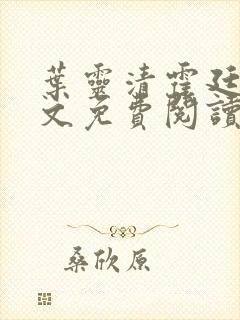 葉靈清霆廷
文免費閱讀
桑欣原